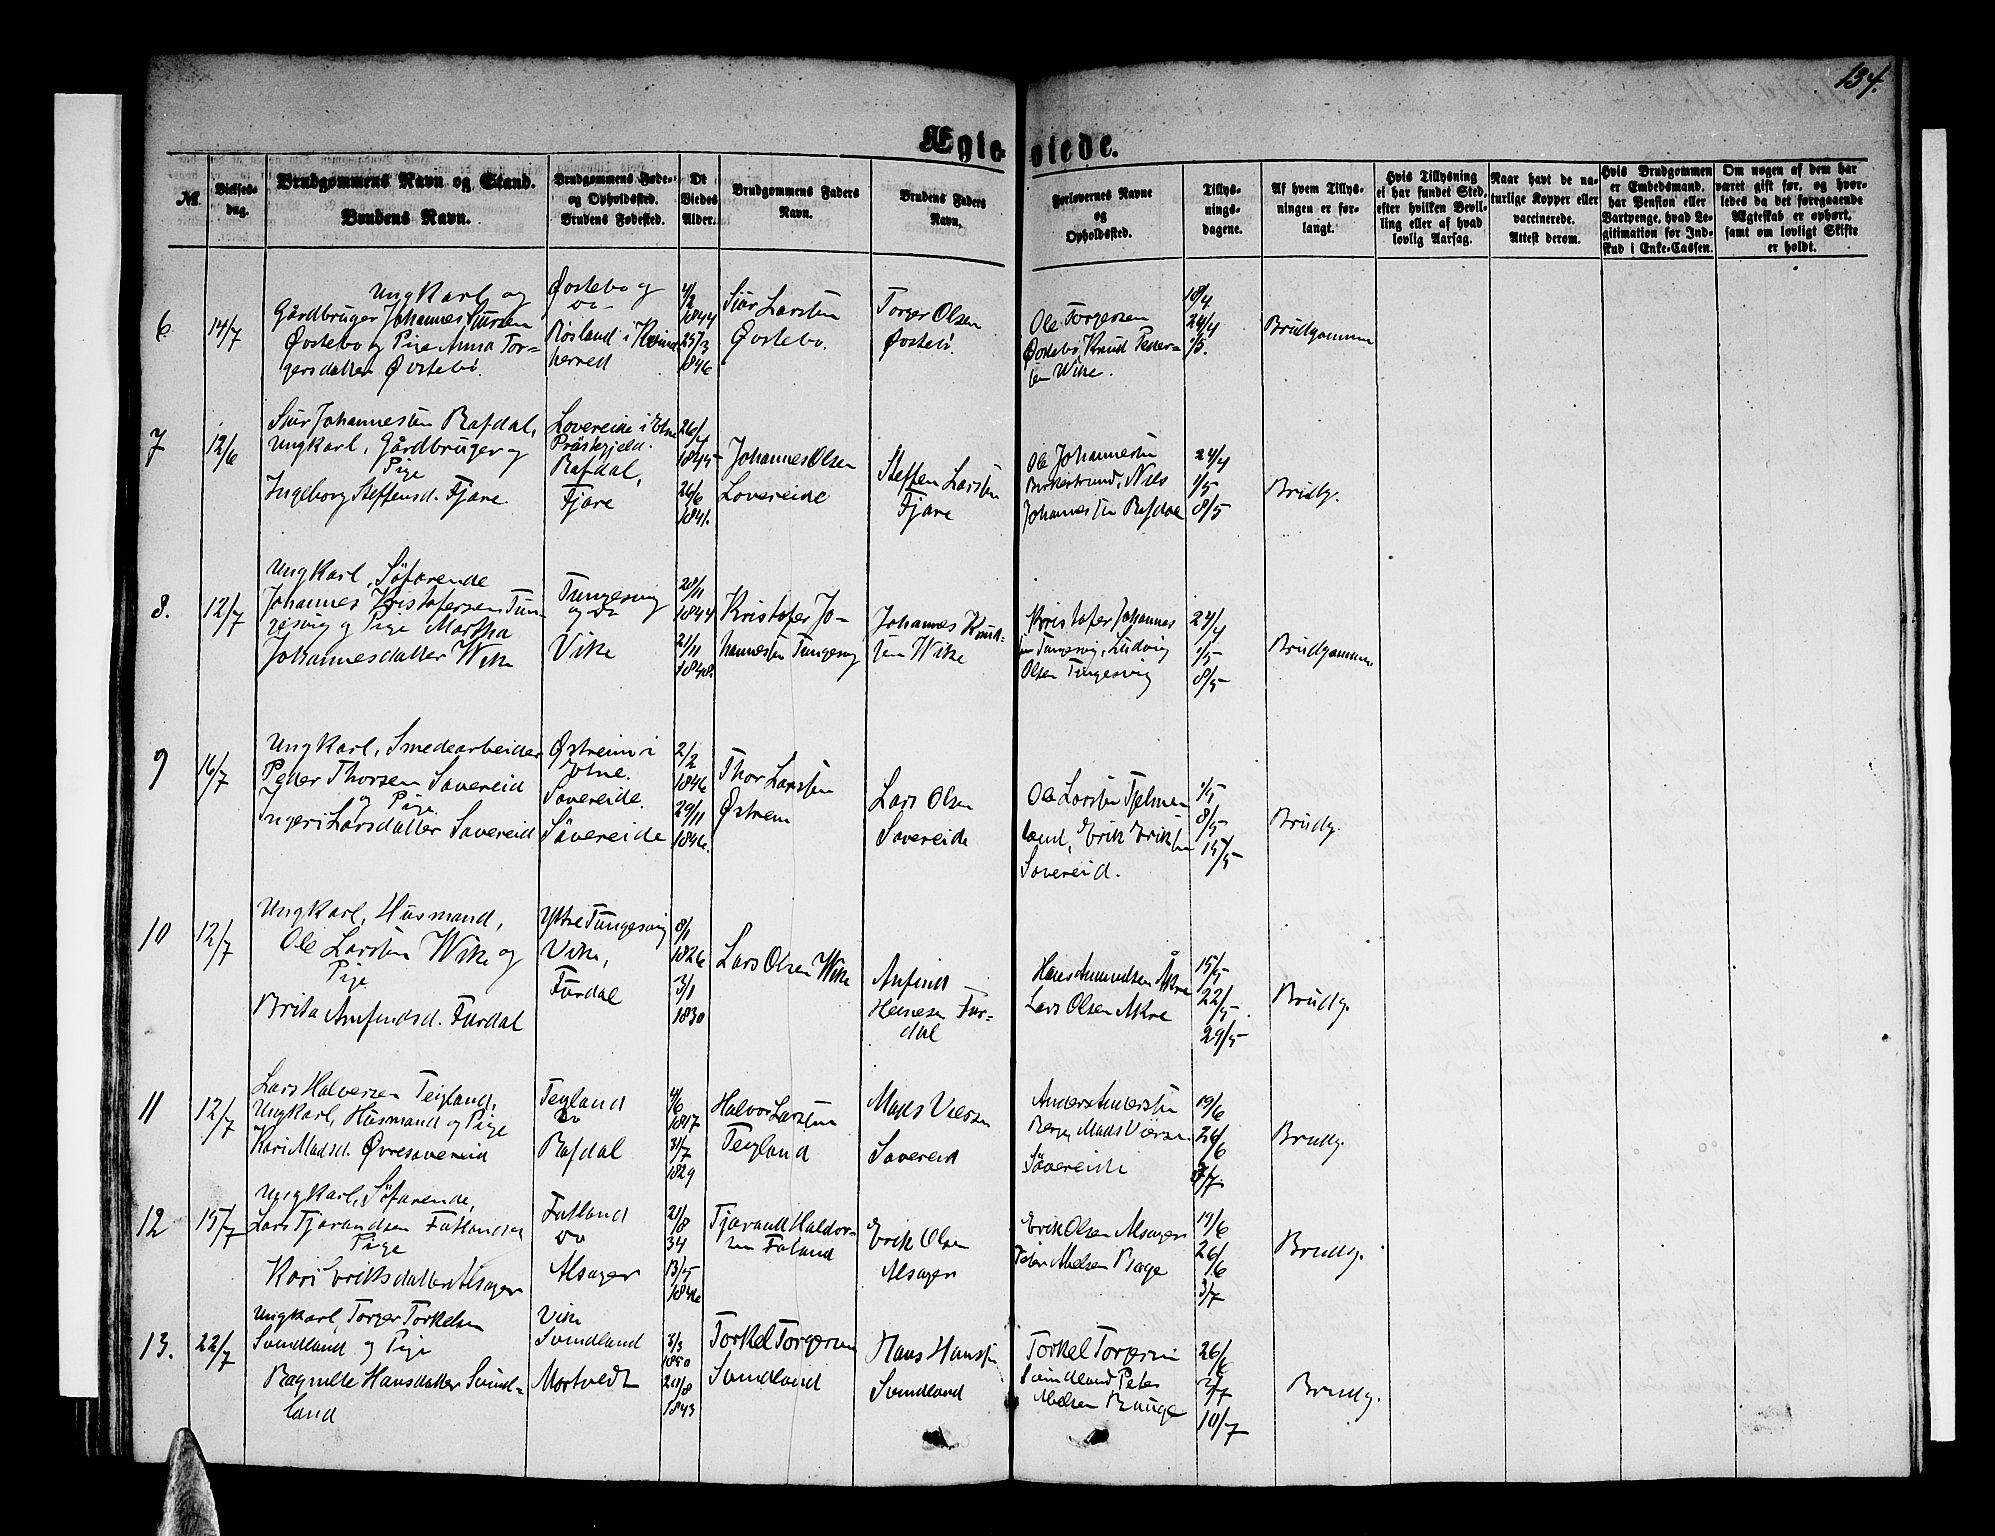 134.
Ægteviede.
№
Vielses-
dag.
Brudgommens Navn og Stand.
Brudens Navn.
Brudgommens Føde-
og Opholdssted.
Brudens Fødested.
De
Viedes
Alder.
Brudgommens Faders
Navn.
Brudens Faders
Navn.
Forlovernes Navne
og
Opholdssted.
Tillys-
nings-
dagene.
Af hvem Tillys-
ningen er for-
langt.
Hvis Tillysning
ei har fundet Sted,
efter hvilken Bevil-
ling eller af hvad
lovlig Aarsag.
Naar havt de na-
turlige Kopper eller
vaccinerede.
Attest derom.
Hvis Brudgommen
er Embedsmand,
har Pension eller
Vartpenge, hvad Le-
gitimation for Ind-
skud i Enke-Cassen.
Om nogen af dem har
været gift før, og hvor-
ledes da det foregaaende
Ægteskab er ophørt,
samt om lovligt Skifte
er holdt.
6
14/7
Ungkarl og
Gårdbruger Johannes Sjursen
Øvstebø og Pige Anna Tor-
gersdatter Øvstebø.
Øvstebø og
do
Røsland i
herred
4/2
1844
25/3
1846
Sjur Larssen
Øvstebø.
Torger Olsen
Øvstebø.
Ole Torgersen
Øvstebø, Knud Peder-
sen Wike.
18/4
24/4
1/5.
Brudgommen
7
12/6
Sjur Johannessen Rafdal,
Ungkarl, Gårdbruger og
Pige
Ingeborg Steffensd. Fjære.
Lovereide i Etne
Præstegjeld.
Rafdal,
Fjære
26/4
1845
26/6
1841.
Johannes Olsen
Lovereide
Steffen Larssen
Fjære
Ole Johannessen
Birkestrand, Nils
Johannessen Rafdal
24/4
1/5
8/5
Brudg.
8.
12/7
Ungkarl, Söfarende
Johannes Kristofersen Tun-
gesvig og Pige Martha
Johannesdatter Wike
Tungesvig
og do
Vike
28/11
1844
21/11
1848.
Kristofer Jo-
hannessen Tungesvig
Johannes Knud-
sen Wike
Kristofer Johannes
sen Tungesvig, Ludvig
Olsen Tungesvig
24/4
1/5
8/5
Brudgommen
9
16/7
Ungkarl, Smedearbeider
Peder Thorsen Sævereid
og Pige
Ingeri Larsdatter Sævereid
Østreim i
Etne.
Sævereide.
Sävereide
2/2
1846
29/11
1846.
Thor Larssen
Østrem
Lars Olsen
Sævereide
Ole Larssen Tjelme-
land, Erik Eriksen
Sævereid.
1/5
8/5
15/5
Brudg.
10
12/7
Ungkarl, Husmand,
Ole Larssen Wike og
Pige
Brita Amfindsd. Fürdal
Yttre Tungesvig
Vike,
Fürdal
8/1
1826
3/1
1830
Lars Olsen Wike
Anfind
Hansen Für-
dal
Hans Amundsen Åkre
Lars Olsen Akre
15/5
22/5
29/5
Brudg.
11
12/7
Lars Halversen Teigland,
Ungkarl, Husmand og Pige
Kari Madsd. Øvresævereid
Teigland
do
Rafdal
4/6
1817
31/7
1829
Halvor Larssen
Teigland
Mads
Sævereid
Anders Anderssen
Berge, Mads
Sævereide
19/6
26/6
3/7
Brudg.
12
15/7
Ungkarl, Söfarende,
Lars Tjerandsen Fatlandsø
Pige
Kari Eriksdatter Alsager
Fatland
do
Alsager
21/8
34
13/5
1846
Tjerand Haldor-
sen Fatland
Erik Olsen
Alsager
Erik Olsen Alsager
Abelsen Bøge
19/6
26/6
3/7
Brudg.
13.
22/7
Ungkarl, Torger Torkelsen
Svindland og Pige
Ragnilde Hansdatter Svind-
land
Vike
Svindland
Mortvedt
3/3
1850
20/8
1843
Torkel Torgersen
Svindland
Hans Hanssen
Svindland
Torkel Torgersen
Svindland, Peter
Abelsen Bauge
26/6
3/7
10/7
Brudg.